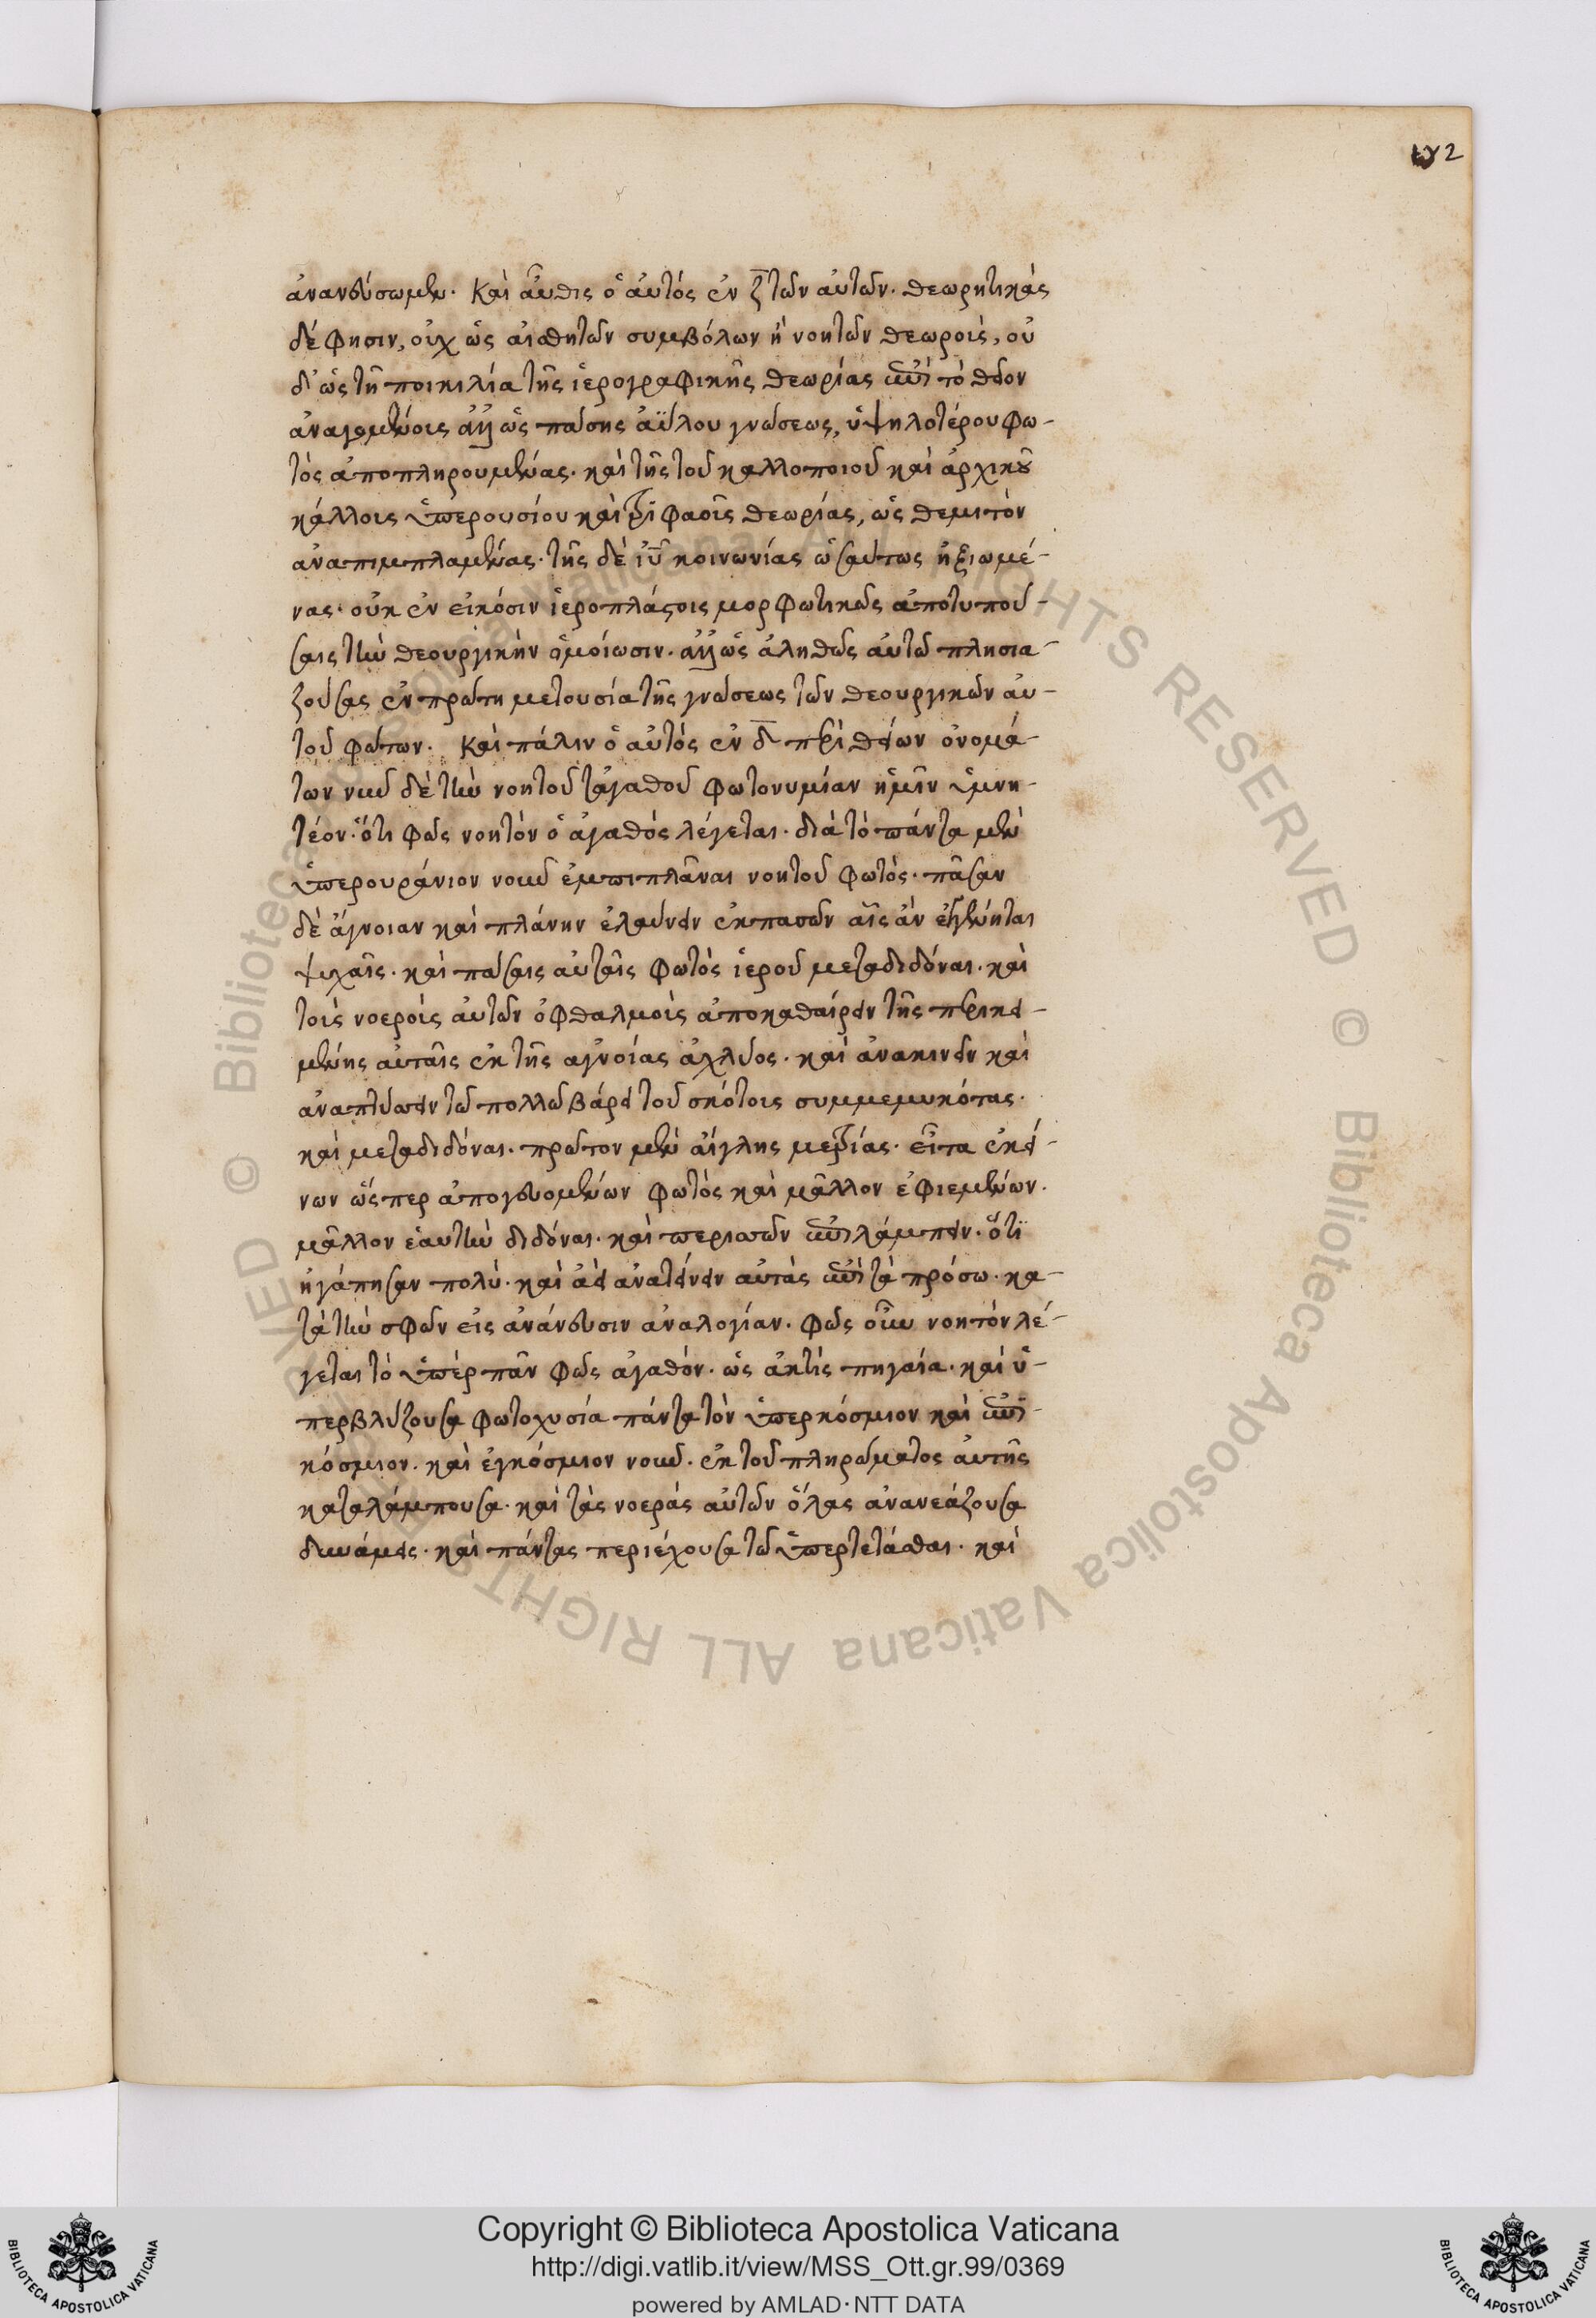 182
ἀνανεύσωμεν. Καὶ αὖθις ὁ αὐτός ἐν ζ τῶν αὐτῶν. θεωρητικὰς
δέ φησιν, οὐχ ὡς αἰσθητῶν συμβόλων ἢ νοητῶν θεωροὶς, οὐ
δ' ὡς τῇ ποικιλία τῆς ἱερογραφικῆς θεωρίας ἐπὶ τὸ θεῖον
ἀναγομένοις ἀλλ' ὡς πάσης ἀΰλου γνώσεως, ὑψηλοτέρου φω-
τὸς ἀποπληρουμένας. καὶ τῆς τοῦ καλλοποιοῦ καὶ ἀρχικοῦ
κάλλοις ὑπερουσίου καὶ τριφαοῖς θεωρίας, ὡς θεμιτὸν
ἀναπιμπλαμένας. τῆς δὲ ἰῦ κοινωνίας ὡσαύτως ἠξιωμέ-
νας. οὐκ ἐν εἰκόσιν ἱεροπλάστοις μορφωτικῶς ἀποτυπού-
σαις τὴν θεουργικὴν ὁμοίωσιν. ἀλλ' ὡς ἀληθῶς αὐτῶ πλησια-
ζούσας ἐν πρώτη μετουσία τῆς γνώσεως τῶν θεουργικῶν αὐ-
τοῦ φώτων. Καὶ πάλιν ὁ αὐτός ἐν δ περὶ θείων ὀνομά-
των νῦν δὲ τὴν νοητοῦ τἀγαθοῦ φωτονυμίαν ἡμῖν ὑμνη-
τέον. ὅτι φῶς νοητὸν ὁ ἀγαθὸς λέγεται. διὰ τὸ πάντα μὲν
ὑπερουράνιον νοῦν ἐμπιπλᾶναι νοητοῦ φωτὸς. πᾶσαν
δὲ ἄγνοιαν καὶ πλάνην ἐλαύνειν ἐκ πασῶν αἷς ἂν ἐγγένηται
ψυχαῖς. καὶ πάσαις αὐταῖς φωτὸς ἱεροῦ μεταδιδόναι. καὶ
τοὶς νοεροὶς αὐτῶν ὀφθαλμοὶς ἀποκαθαίρειν τῆς περικει-
μένης αὐταῖς ἐκ τῆς ἀγνοίας ἀχλύος. καὶ ἀνακινεῖν καὶ
ἀναπτύσσειν τῶ πολλῶ βάρει τοῦ σκότοις συμμεμυκότας.
καὶ μεταδιδόναι. πρῶτον μὲν αἴγλης μετρίας. εἶτα ἐκεί-
νων ὥσπερ ἀπογευομένων φωτὸς καὶ μᾶλλον ἐφιεμένων.
μᾶλλον ἑαυτὴν διδόναι. καὶ περισσῶν ἐπιλάμπειν. ὅτι
ἠγάπησαν πολὺ. καὶ ἀεὶ ἀνατείνειν αὐτὰς ἐπὶ τὰ πρόσω. κα-
τὰ τὴν σφῶν εἰς ἀνάνευσιν ἀναλογίαν. φῶς οὖν νοητὸν λέ-
γεται τὸ ὑπὲρ πᾶν φῶς ἀγαθόν. ὡς ἀκτὶς πηγαία. καὶ ὑ-
περβλύζουσα φωτοχυσία πάντα τὸν ὑπερκόσμιον καὶ ἐπι-
κόσμιον. καὶ ἐγκόσμιον νοῦν. ἐκ τοῦ πληρώματος αὐτῆς
καταλάμπουσα. καὶ τὰς νοερὰς αὐτῶν ὅλας ἀνανεάζουσα
δυνάμεις. καὶ πάντας περιέχουσα τῶ ὑπερτετάσθαι. καὶ
Copyright © Biblioteca Apostolica Vaticana
http://digi.vatlib.it/view/MSS_Ott.gr.99/0369
powered by AMLAD·NTT DATA